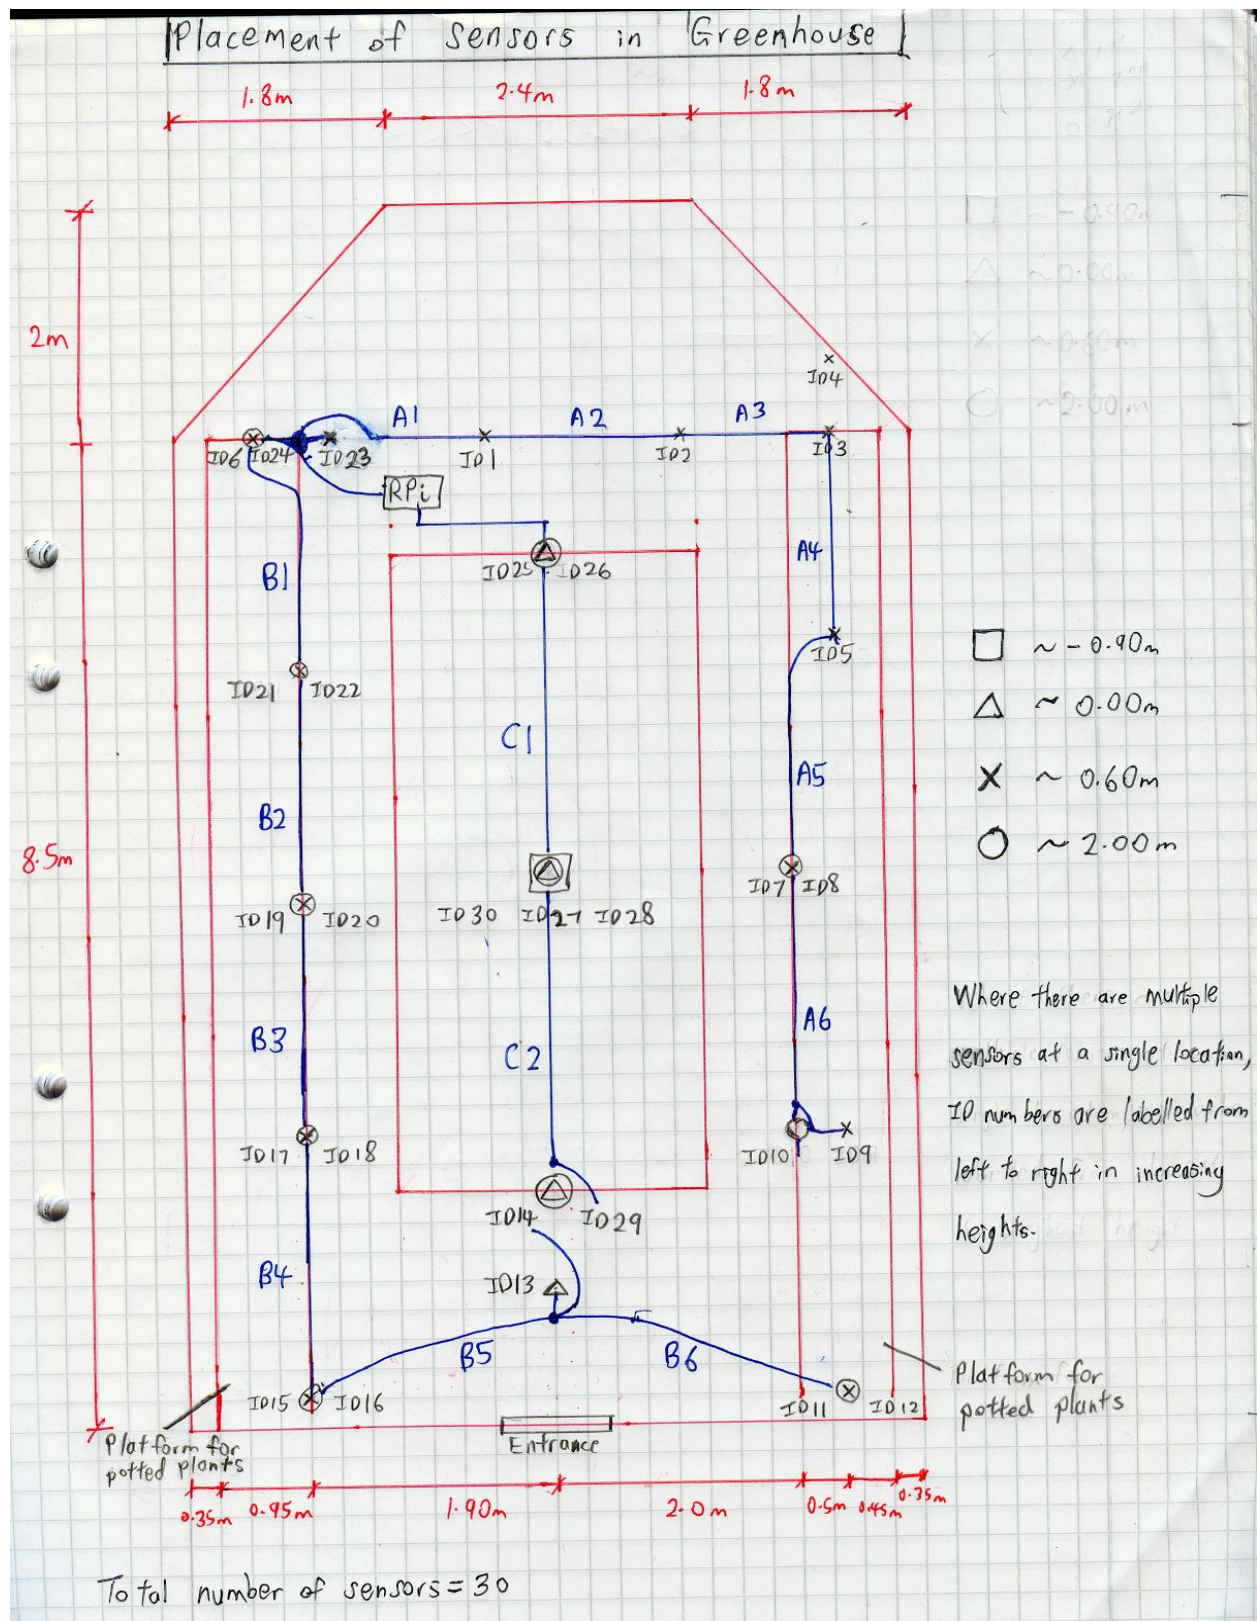 Placement of Sensors in Greenhouse
1.8m 2.4m 1.8m
2m
ID4
A1 A2 A3
ID6 ID24 ID23 ID1 ID2 ID3
RPi
A4
ID25 ID26
B1
ID5
ID21 ID22
C1
A5
B2
8.5m
ID7 ID8
ID19 ID20
ID30 ID27 ID28
A6
B3
C2
ID10 ID9
ID17 ID18
ID14 ID29
B4
ID13
B5 B6
ID15 ID16
ID11 ID12
Entrance
Platform for
potted plants
Platform for
potted plants
0.35m 0.95m 1.90m 2.0m 0.5m 0.45m 0.35m
~ -0.90m
~ 0.00m
~ 0.60m
~ 2.00m
Where there are multiple
sensors at a single location,
ID numbers are labelled from
left to right in increasing
heights.
Total number of sensors = 30